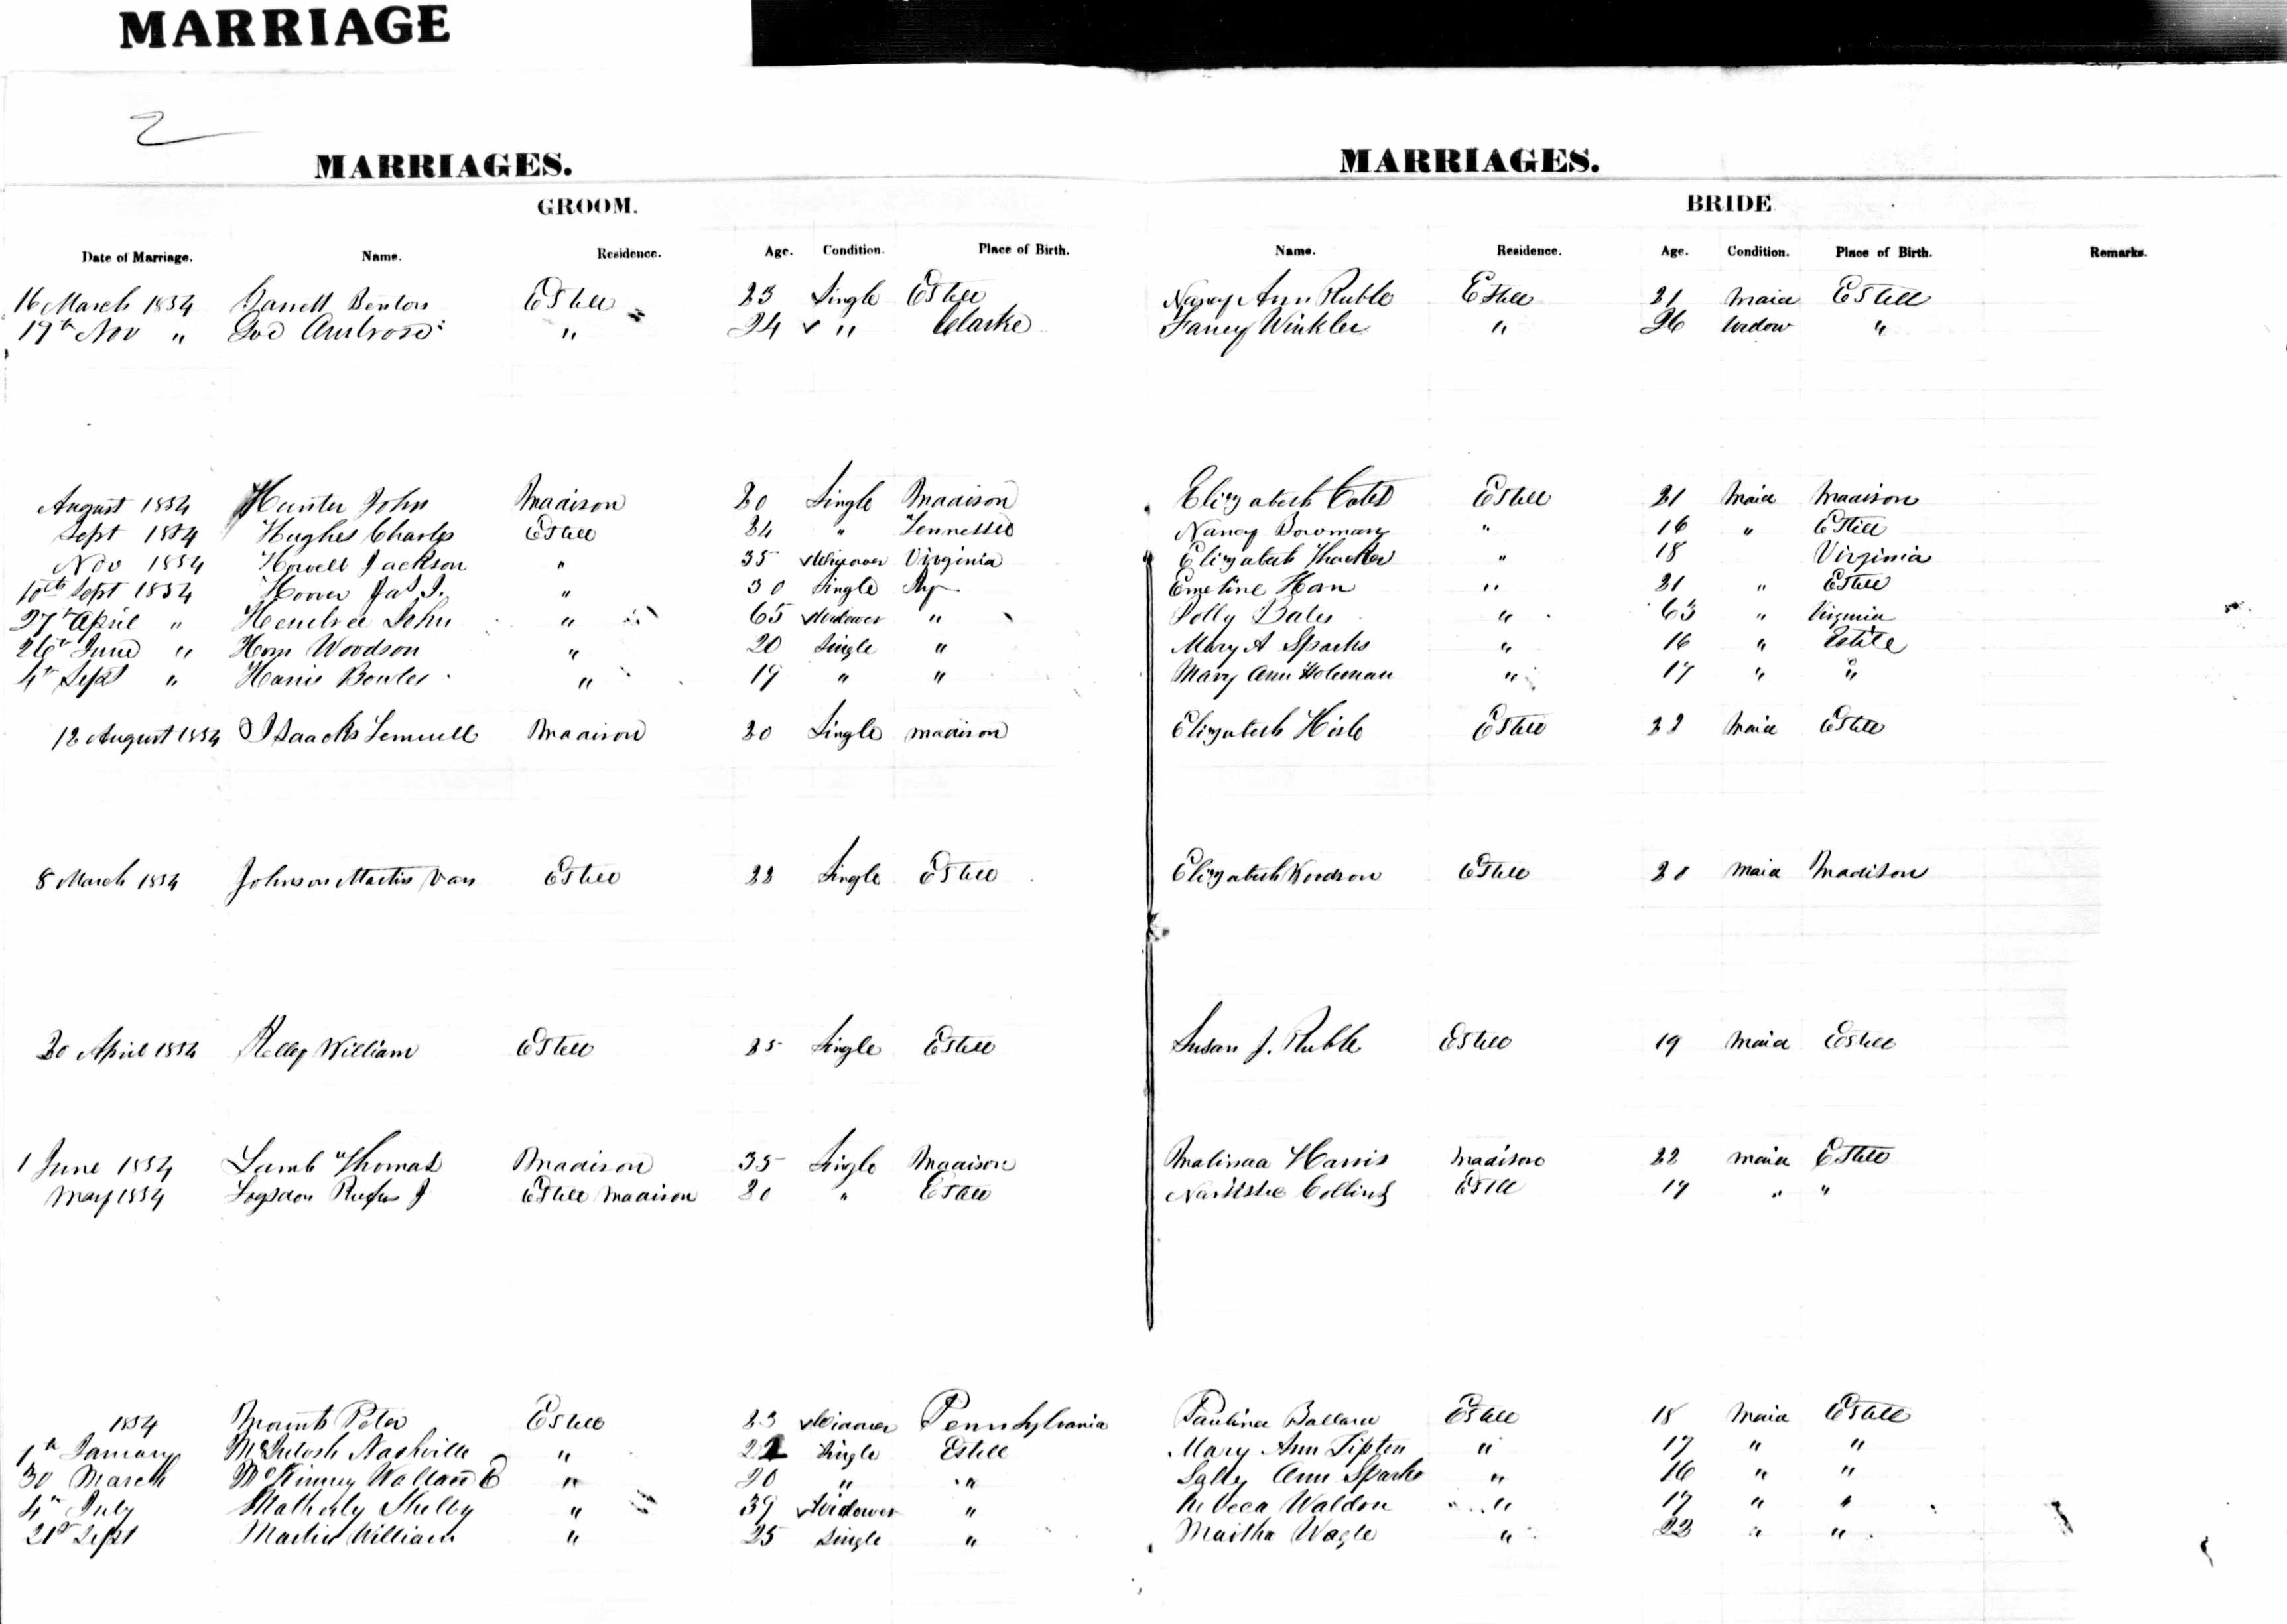 MARRIAGE
2
MARRIAGES. MARRIAGES.
GROOM. BRIDE
Date of Marriage. Name. Residence. Age. Condition. Place of Birth. Name. Residence. Age. Condition. Place of Birth. Remarks.
16 March 1854 Garrett Benton Estill 23 Single Estill Nancy Ann Ruble Estill 21 Maid Estill
19th Nov " Ambrose " 24 " Clarke Fancy Winkler " 26 Widow "
August 1854 Hunter John Madison 20 Single Madison Elizabeth Cates Estill 21 Maid Madison
Sept 1854 Hughes Charles Estill 24 " Tennessee Nancy Bowman " 16 " Estill
Nov 1854 Howell Jackson " 35 Widower Virginia Elizabeth Thacker " 18 Virginia
10th Sept 1854 Hoover Jas J. " 30 Single Emeline Horn " 21 " Estill
27th April " John " 65 Widower " Polly Bates " 63 " Virginia
26th June " Horn Woodson " 20 Single " Mary A Sparks " 16 " Estile
4th Sept " Harris Bowles " 19 " " Mary Ann Holeman " 17 " "
12 August 1854 Isaacks Lemuell Madison 20 Single Madison Elizabeth Hisle Estill 22 Maid Estill
8 March 1854 Johnson Martin Van Estill 22 Single Estill Elizabeth Woodson Estill 20 Maid Madison
20 April 1854 Kelley William Estill 25 Single Estill Susan J. Ruble Estill 19 Maid Estill
1 June 1854 Lamb Thomas Madison 35 Single Madison Malinda Harris Madison 22 Maid Estill
May 1854 Logsdon Rufus J Estill Madison 20 " Estill Collins Estill 17 " "
1854 Peter Estill 23 Widower Pennsylvania Paulina Ballard Estill 18 Maid Estill
1th January McIntosh Nashville " 22 Single Estill Mary Ann Tipton " 17 " "
30 March McKinney Wallace " 20 " " Sally Ann Sparks " 16 " "
4th July Matherly Shelby " 39 Widower " Rebeca Waldon " 17 " "
21st Sept Martin William " 25 Single " Martha Wagle " 22 " "